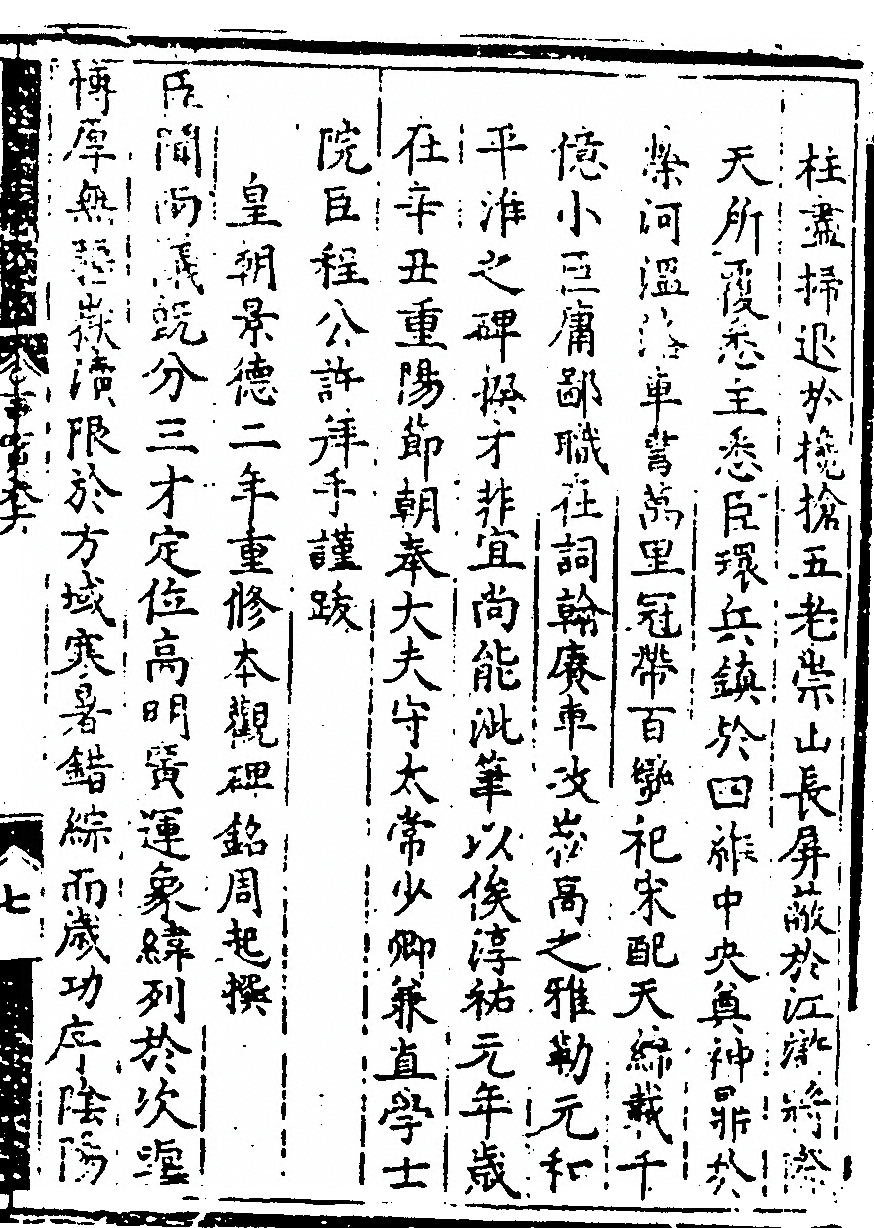 柱盡掃退於欃搶五老崇山長屏蔽於江
天所覆悉主悉臣環兵鎮於四維中央奠神鼎於
榮河溫洛車書萬里冠帶百蠻祀宋配天綿載千
億小臣庸鄙職在詞翰賡車攻崧高之雅勒元和
平淮之碑揆才非宜尚能泚筆以俟淳祐元年歲
在辛丑重陽節朝奉大夫守太常少卿兼直學士
院臣程公許拜手謹跋
皇朝景德二年重修本觀碑銘周起撰
臣聞兩儀旣分三才定位高明賔運象緯列於次躔
博厚無嶽瀆限於方域寒暑錯綜而歲功序陰陽
七